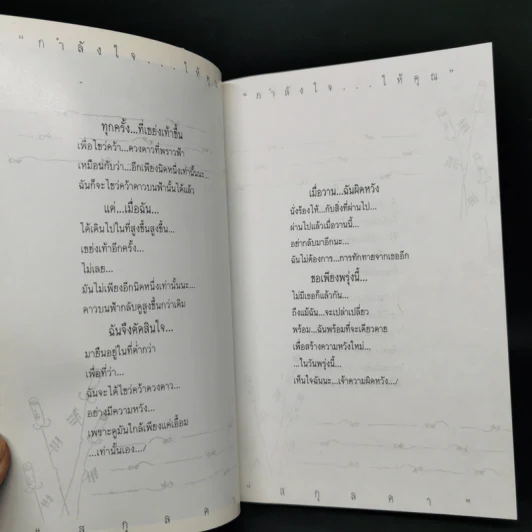 "กำลังใจ...ให้คุณ"
ทุกครั้ง...ที่เขย่งเท้าขึ้น
เพื่อไขว่คว้า...ดวงดาวที่พราวฟ้า
เหมือนกับว่า...อีกเพียงนิดหนึ่งเท่านั้นนะ...
ฉันก็จะไขว่คว้าดาวบนฟ้านั้นได้แล้ว
แต่...เมื่อฉัน...
ได้เดินไปในที่สูงขึ้นสูงขึ้น...
เขย่งเท้าอีกครั้ง...
ไม่เลย...
มันไม่เพียงอีกนิดหนึ่งเท่านั้นนะ...
ดาวบนฟ้ากลับดูสูงขึ้นกว่าเดิม
ฉันจึงตัดสินใจ...
มายืนอยู่ในที่ต่ำกว่า
เพื่อที่ว่า...
ฉันจะได้ไขว่คว้าดวงดาว...
อย่างมีความหวัง...
เพราะดูมันใกล้เพียงแค่เอื้อม
...เท่านั้นเอง.../
"สกุลคา
"กำลังใจ...ให้คุณ"
เมื่อวาน...ฉันผิดหวัง
นั่งร้องไห้...กับสิ่งที่ผ่านไป...
ผ่านไปแล้วเมื่อวานนี้...
อย่ากลับมาอีกนะ...
ฉันไม่ต้องการ...การทักทายจากเธออีก
ขอเพียงพรุ่งนี้...
ไม่มีเธอก็แล้วกัน...
ถึงแม้ฉัน...จะเปล่าเปลี่ยว
พร้อม...ฉันพร้อมที่จะเดียวดาย
เพื่อสร้างความหวังใหม่...
...ในวันพรุ่งนี้...
เห็นใจฉันนะ...เจ้าความผิดหวัง.../
"สกุลคา"